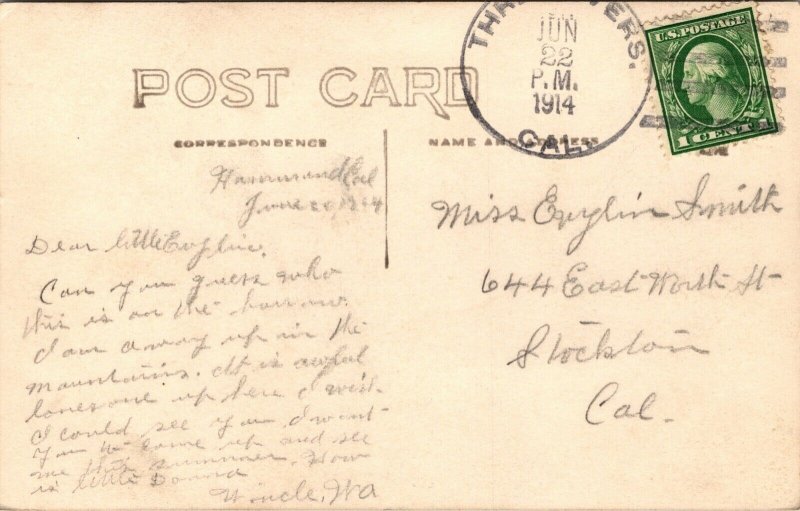 POST CARD
THREE RIVERS.
JUN
22
P.M.
1914
CAL.
U.S. POSTAGE
1 CENT 1
CORRESPONDENCE
NAME AND ADDRESS
Hammond Cal
June 1914
Dear little
Can you guess who
this is on the
I am away up in the
mountains. It is awful
lonesome up here I wish
I could see you I want
you to come up and see
me this summer. How
is little
Miss Smith
644 East Worth St
Stockton
Cal.